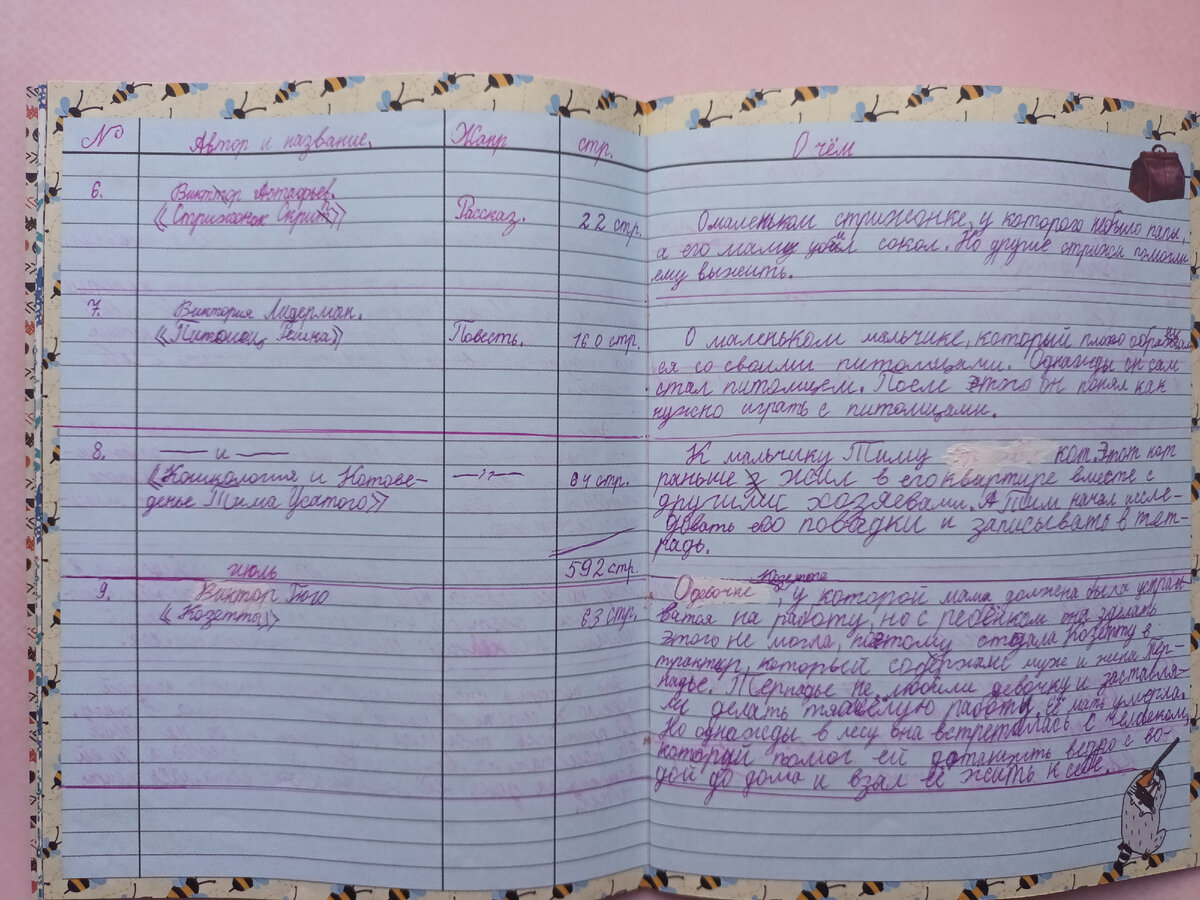 № Автор и название. Жанр стр. О чём
6. Виктор Астафьев.
«Стрижонок Скрип» Рассказ. 22 стр.
О маленьком стрижонке, у которого небыло папы,
а его маму убил сокол. Но другие стрижи помогли
ему выжить.
7. Виктория Ледерман.
«Питомец Гешка» Повесть. 160 стр.
О маленьком мальчике, который плохо обращал
ся со своими питомцами. Однажды он сам
стал питомцем. После этого он понял как
нужно играть с питомцами.
8. — и —
«Кошкология и Котове-
денье Тима Усатого» —,,— 84 стр.
К мальчику Тиму кот. Этот кот
раньше жил в его квартире вместе с
другими хозяевами. А Тим начал иссле-
довать его повадки и записывать в тет-
радь.
июль 592 стр.
9. Виктор Гюго
«Козетта» 63 стр.
Козетте
О девочке, у которой мама должна была устраи-
ватся на работу, но с ребёнком она сделать
этого не могла, поэтому отдала Козетту в
трактир, который содержали муж и жена Тер-
надье. Тернадье не любили девочку и заставля-
ли делать тяжёлую работу. Её мать умерла.
Но однажды в лесу она встретилась с человеком,
который помог ей дотащить ведро с во-
дой до дома и взял её жить к себе.